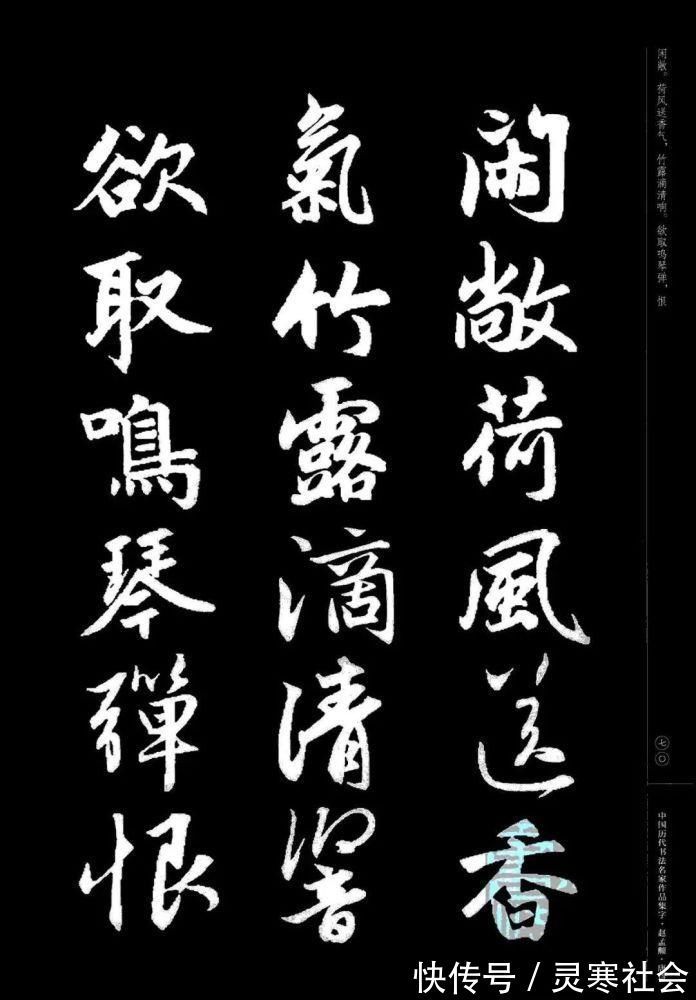 闲敞。荷风送香气，竹露滴清响。欲取鸣琴弹，恨
閑敞荷風送香
氣竹露滴清響
欲取鳴琴彈恨
七〇
中国历代书法名家作品集字·赵孟頫·
快传号／灵寒社会